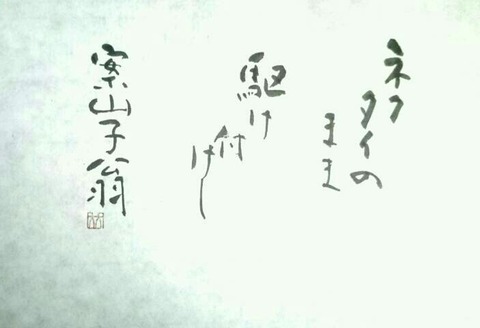 ネクタイの
まま
駆け付けし
案山子翁